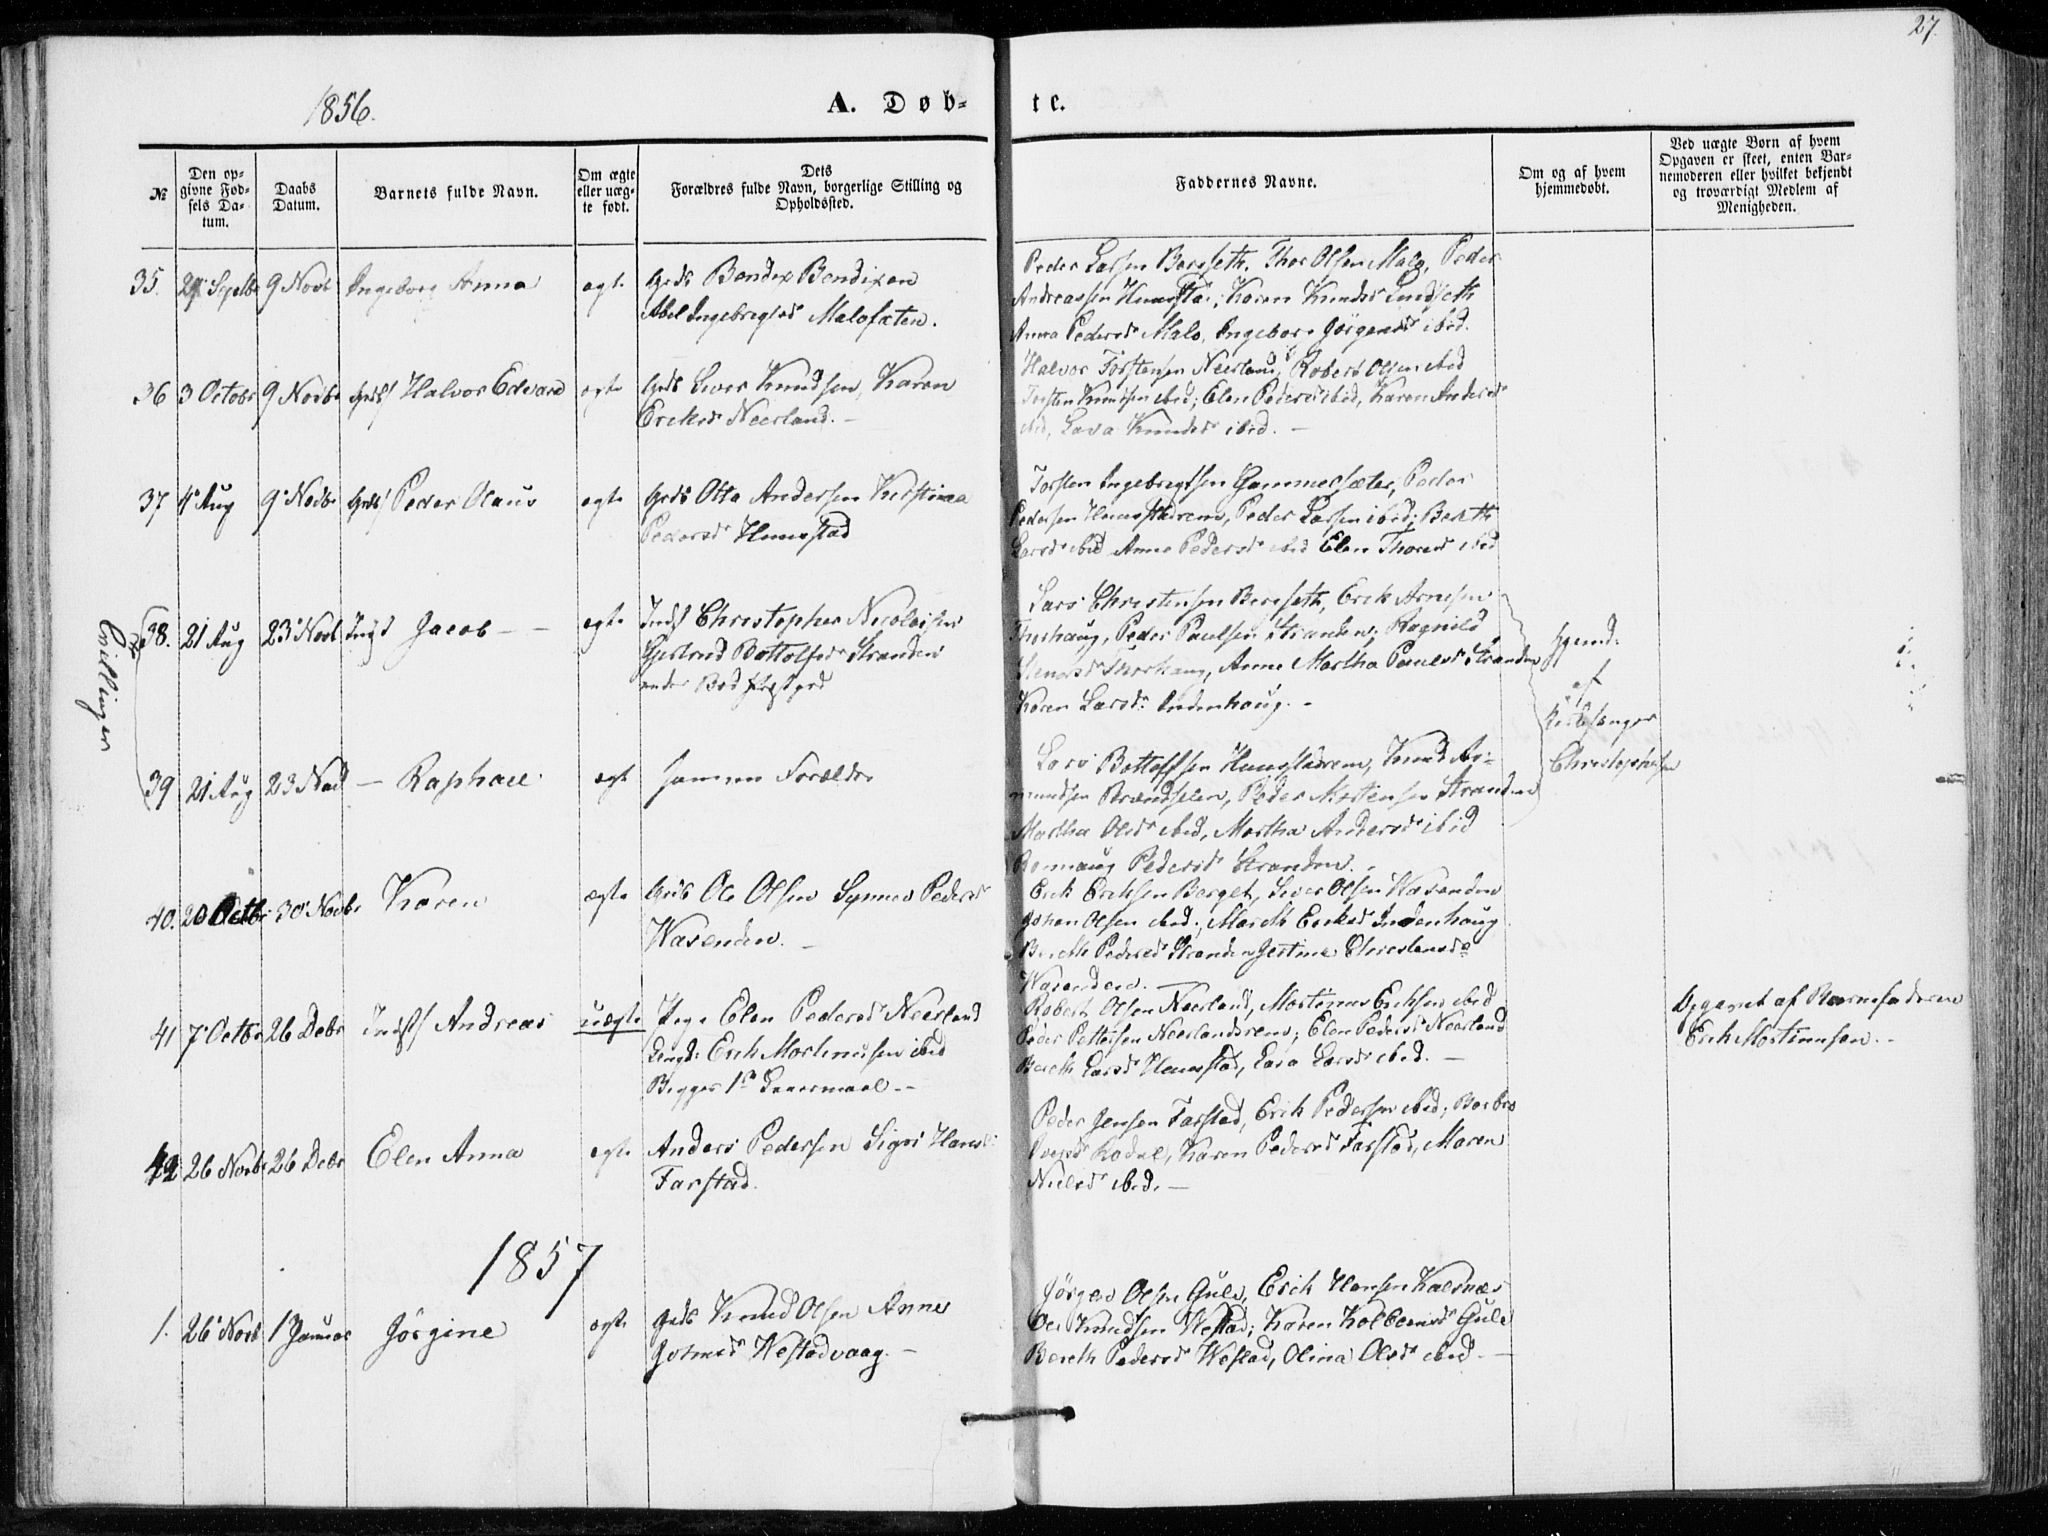 27.
1856.
A. Døb-
te.
№
Den op-
givne Fød-
sels Da-
tum.
Daabs
Datum.
Barnets fulde Navn.
Om ægte
eller uæg-
te født.
Dets
Forældres fulde Navn, borgerlige Stilling og
Opholdssted.
Faddernes Navne.
Om og af hvem
hjemmedøbt.
Ved uægte Børn af hvem
Opgaven er skeet, enten Bar-
nemoderen eller hvilket bekjendt
og troværdigt Medlem af
Menigheden.
35. Septbr 9 Novb Ingeborg Anna ægte Grdb Bendix Bendixen
Abel Ingebregtsd Malosæten.
Peder Larsen Bergseth, Thor Olsen Malo, Peder
Andreassen Hunstad, Karen Knudsd
Anna Pedersd Malo, Ingeborg Jörgensd ibid.
36 3 Octobr 9 Novbr Grdb Halvor Edvard ægte Grdb Siver Knudsen, Karen
Eriksd Neerland. -
Halvor Torstensen Neerland, Robert Olsen ibid
Torsten Knudsen ibid, Elen Pedersd ibid, Karen Andersd
ibid, Lava Knudsd ibid. -
37 4 Aug 9 Novbr Grdb Peder Olaus ægte Grdb Otto Andersen Kirstina
Pedersd Hunstad
Torsten Ingebregtsen Gammelsæter, Peder
Pedersen Hunstadrem, Peder Larsen ibid; Bereth
Larsd ibid Anne Pedersd ibid Elen Thoresd ibid
Tvillinger
38. 21 Aug 23 Novb Indst Jacob - - ægte Indst Christopher Nicolaisen
Gjertrud Bottolfsd Stranden
under Bod Prestgrd
Lars Christensen Bergseth, Erik Arnesen
Thorhaug, Peder Paulsen Stranden; Ragnild
Thorhaug, Anne Martha Paulsd Stranden
Karen Larsd Indenhaug. -
Hjemd:
af
Kirkesanger
Christophersen
39 21 Aug 23 Novb - Raphael ægt samme Forældre
Lars Bottolfsen Hunstadrem, Knud As-
mundsen Brændselen, Peder Mortensen Stranden
Martha Olsd ibid, Martha Andersd ibid
Rannaug Pedersd Stranden.
40. 20 Octbr 30 Novbr Karen ægte Grdb Ole Olsen Synnev Pedersd
Waxenden. -
Erik Eriksen Berget, Siver Olsen Waxenden
Johan Olsen ibid; Marith Eriksd Indenhaug
Bereth Pedersd Stranden Gjertine Christensd
Waxenden. -
41 7 Octbr 26 Debr Indst Andreas uægte Pige Elen Pedersd Neerland
Ungk: Erik Mortinusen ibid
Begges 1ste Leiermaal. -
Robert Olsen Neerland, Mortinus Eriksen ibid
Peder Pettersen Neerlandsrem; Elen Pedersd Neerland
Bereth Larsd Hunstad, Lava Larsd ibid. -
Opgivet af Barnefaderen
Erik Mortinusen. -
42 26 Novb 26 Debr Elen Anna ægte Anders Pedersen Sigri Hansd
Farstad.
Peder Jensen Farstad, Erik Pedersen ibid; Barbro
Rødal, Karen Pedersd Farstad, Maren
Nielsd ibid. -
1857
1. 26 Novb 1 Januar Jörgine ægte Grdb Knud Olsen Anne
Westadvaag. -
Jörgen Olsen Gule, Erik Hansen Kalsnæs
Ole Knudsen Westad; Karen Kolbeinsd Gule
Bereth Pedersd Westad, Olina Olsd ibid. -